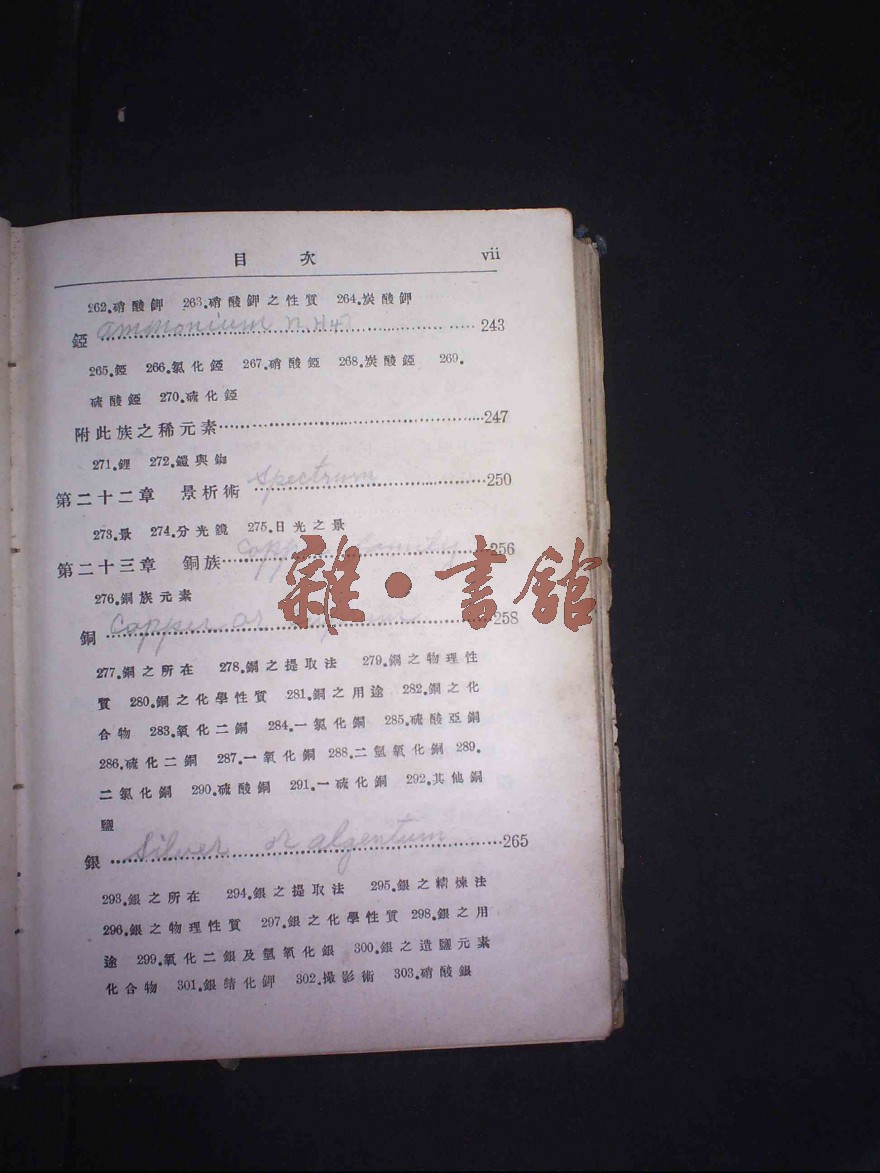 目 次 vii
262.硝酸鉀 263.硝酸鉀之性質 264.炭酸鉀
錏 ammonium NH4 ········ 243
265.錏 266.氯化錏 267.硝酸錏 268.炭酸錏 269.
硫酸錏 270.硫化錏
附此族之稀元素········247
271.鋰 272.鏭與銣
第二十二章 景析術 spectrum ········250
273.景 274.分光鏡 275.日光之景
第二十三章 銅族 copper family ········256
雜·書館
276.銅族元素
銅 copper or ········258
277.銅之所在 278.銅之提取法 279.銅之物理性
質 280.銅之化學性質 281.銅之用途 282.銅之化
合物 283.氧化二銅 284.一氯化銅 285.硫酸亞銅
286.硫化二銅 287.一氧化銅 288.二氫氧化銅 289.
二氯化銅 290.硫酸銅 291.一硫化銅 292.其他銅
鹽
銀 silver or algentum ········265
293.銀之所在 294.銀之提取法 295.銀之精煉法
296.銀之物理性質 297.銀之化學性質 298.銀之用
途 299.氧化二銀及氫氧化銀 300.銀之造鹽元素
化合物 301.銀䝼化鉀 302.撮影術 303.硝酸銀